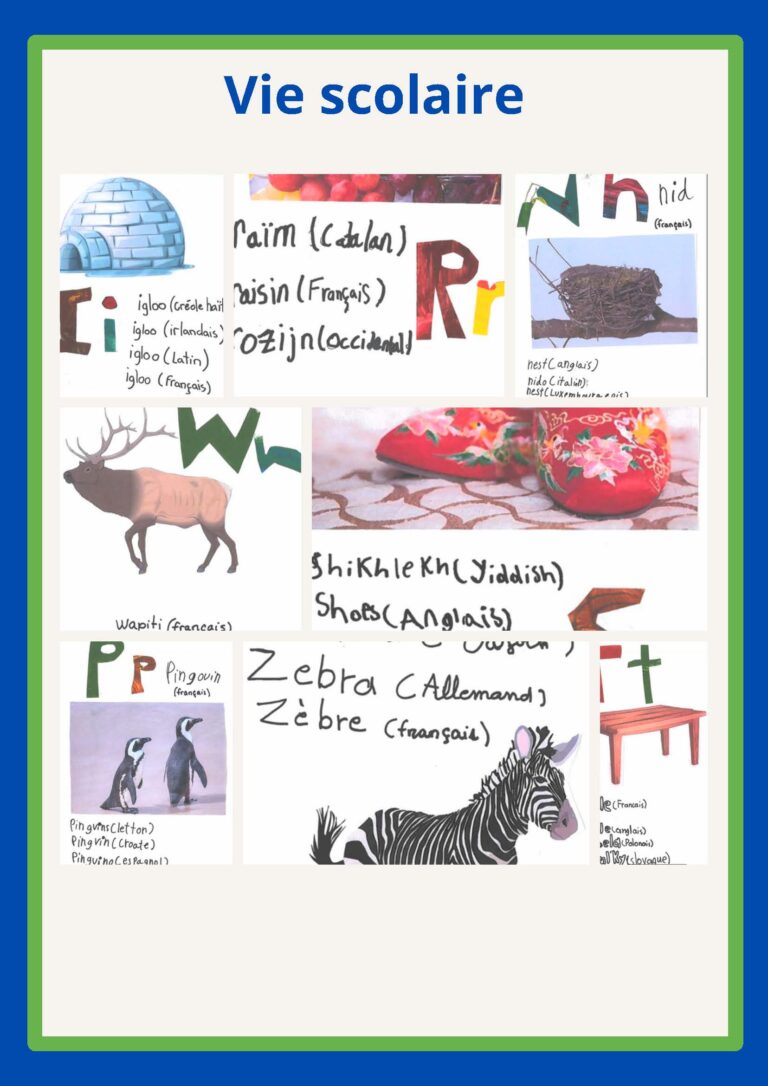 Vie scolaire
I i
igloo (Créole haï
igloo (irlandais)
igloo (Latin)
igloo (Français)
raïm (Catalan)
raisin (Français)
rozijn (occidental)
R r
N n
nid
(français)
nest (anglais)
nido (italian):
nest (Luxembourgeois)
W w
Wapiti (français)
Shikhlekh (Yiddish)
Shoes (Anglais)
P p
Pingouin
(français)
Pingvins (letton)
Pingvin (Croate)
Pinguino (espagnol)
Zebra (Allemand)
Zèbre (français)
t
le (Francais)
le (anglais)
(Polonais)
(slovaque)